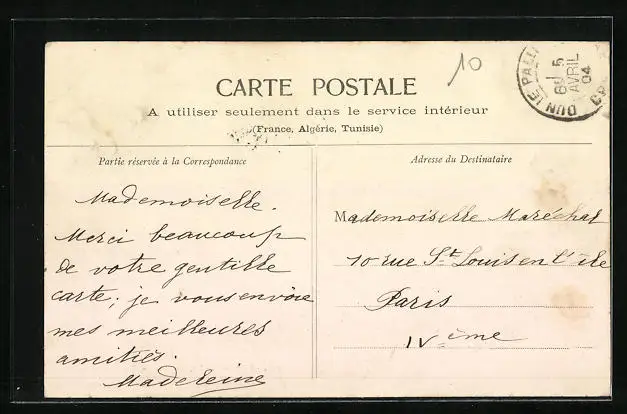 10
CARTE POSTALE
A utiliser seulement dans le service intérieur
(France, Algérie, Tunisie)
DUN LE PALL
5
AVRIL
04
Partie réservée à la Correspondance
Mademoiselle.
Merci beaucoup
de votre gentille
carte; je vous envoie
mes meilleures
amitiés.
Madeleine
Adresse du Destinataire
Mademoiselle Maréchal
10 rue St. Louis en l'île
Paris
IVème